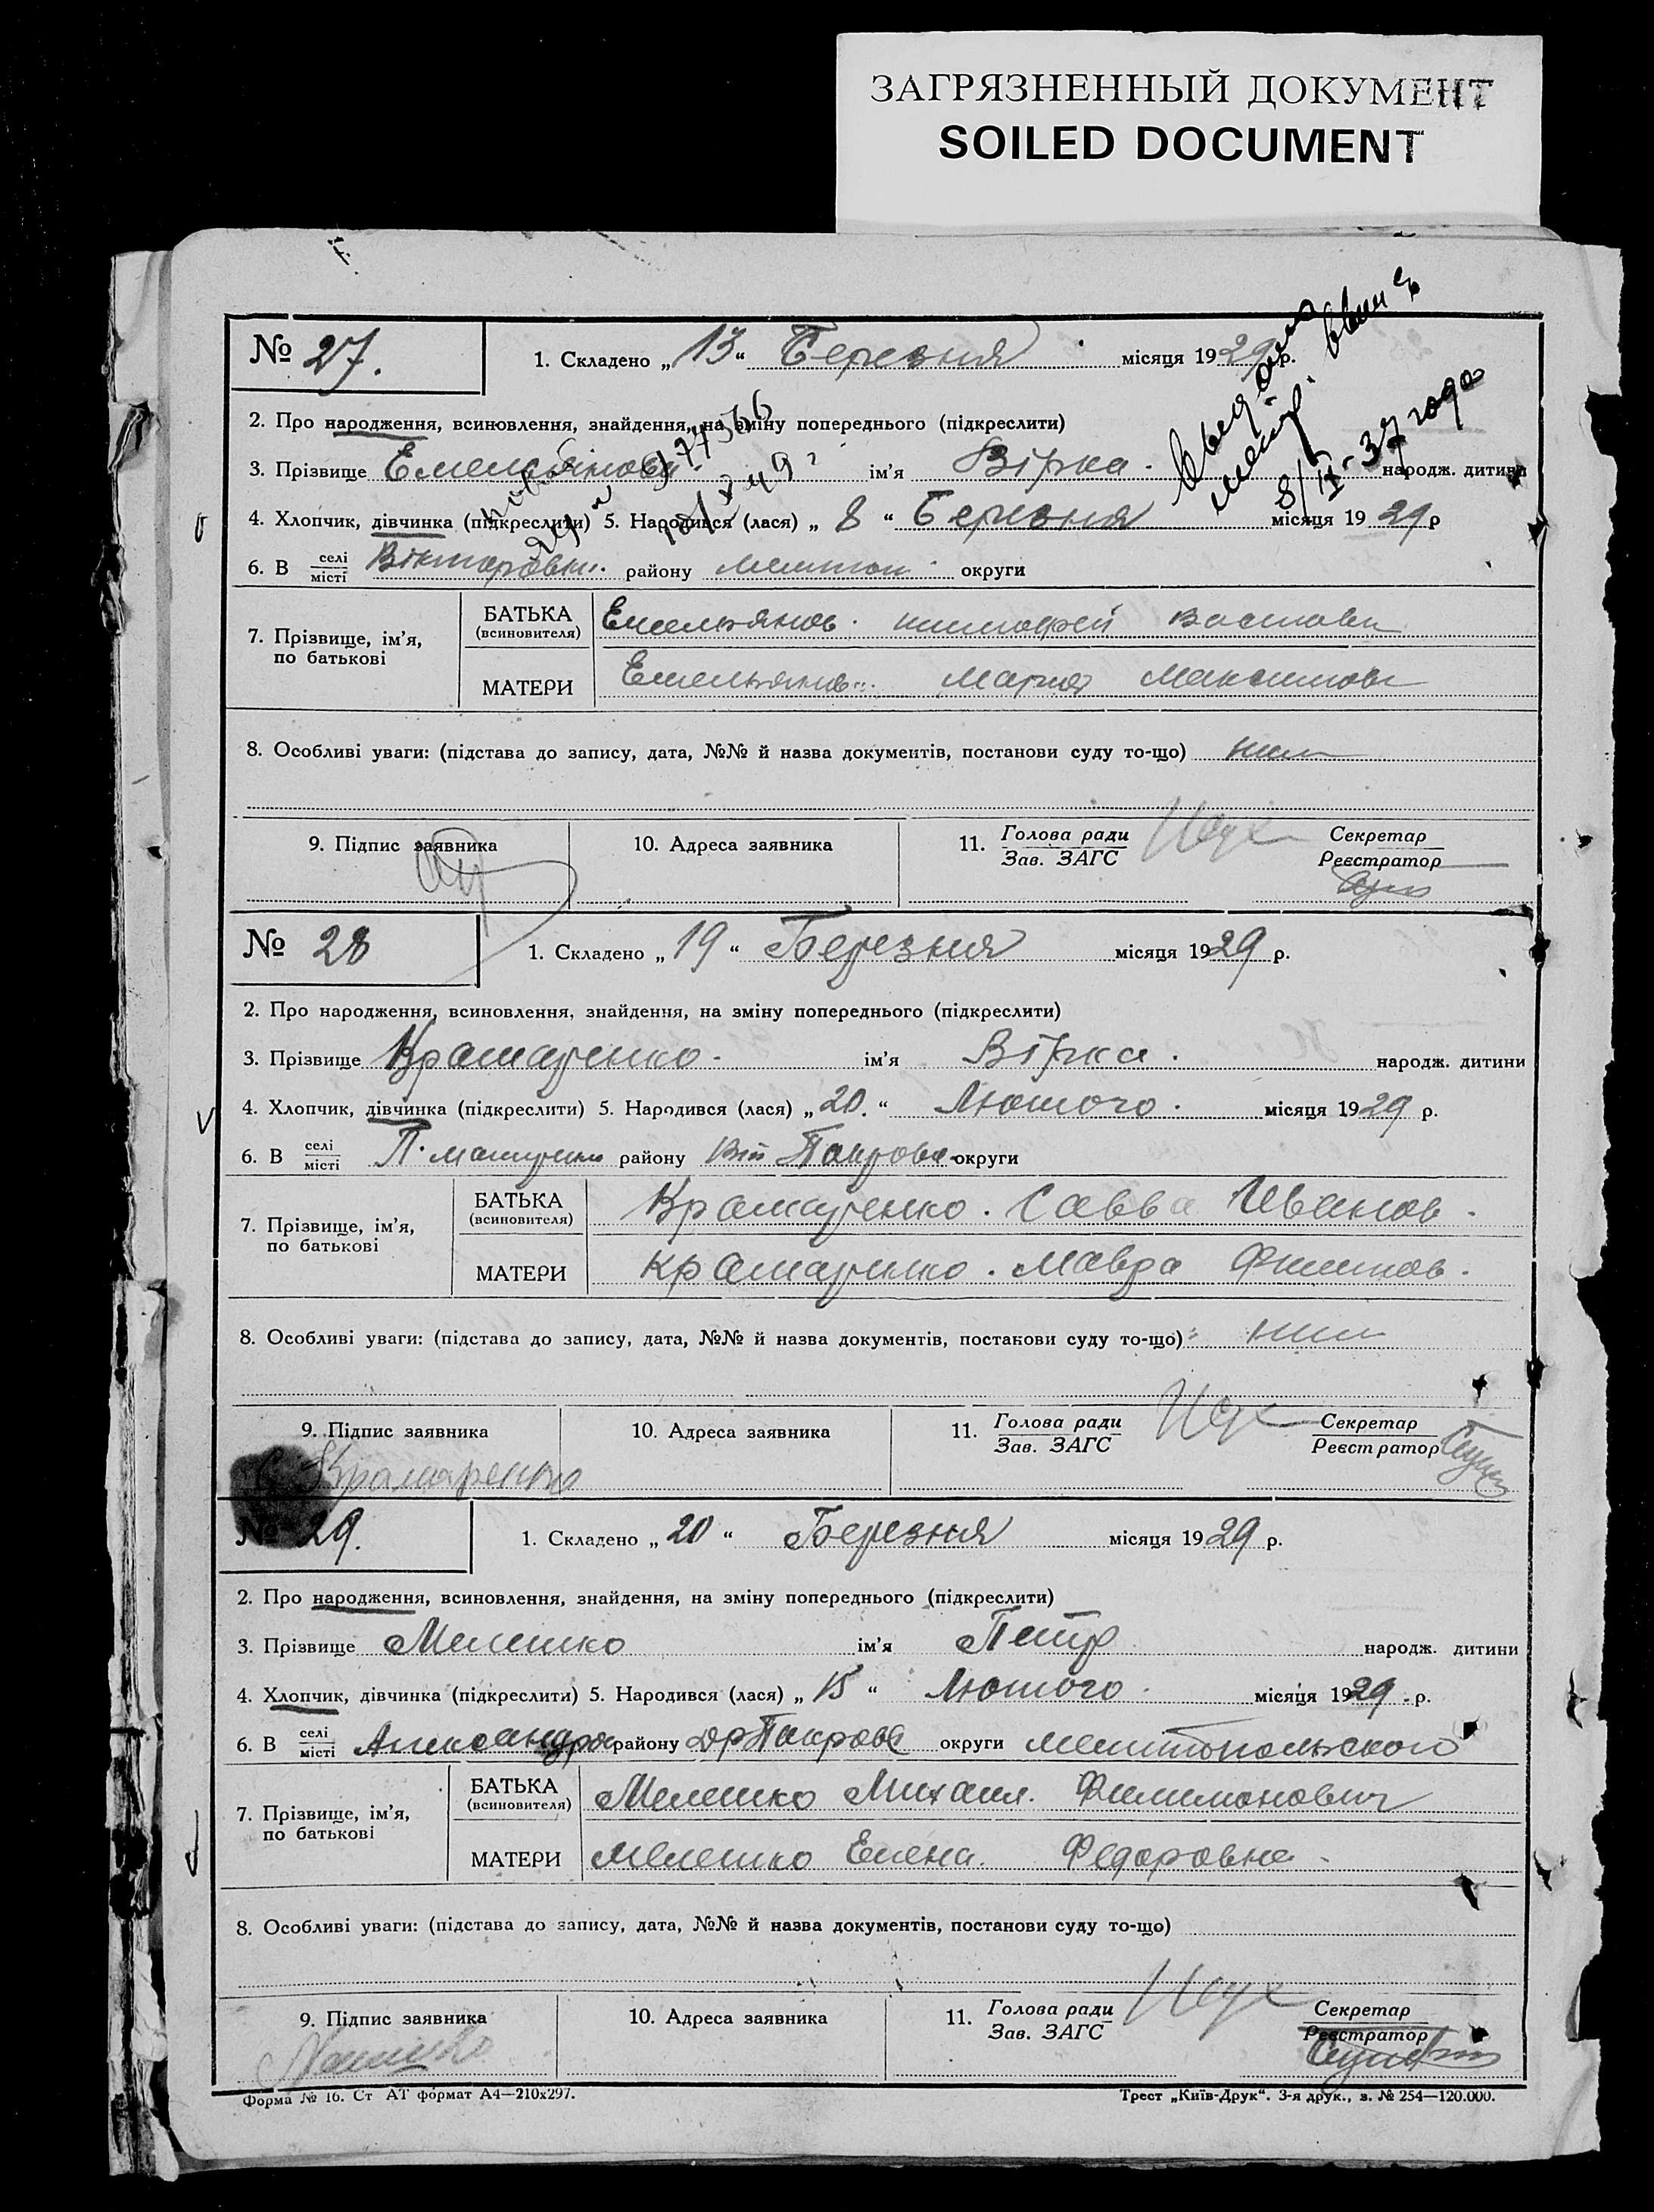 ЗАГРЯЗНЕННЫЙ ДОКУМЕНТ
SOILED DOCUMENT
№ 27. 1. Складено „13“ Березня місяця 1929 р.
2. Про народження, всиновлення, знайдення, на зміну попереднього (підкреслити)
3. Прізвище ім’я Вірка. народж. дитини
8/II-37 года
4. Хлопчик, дівчинка (підкреслити) 5. Народився (лася) „8“ Березня місяця 1929 р
6. В селі місті району округи
7. Прізвище, ім’я, по батькові
БАТЬКА (всиновителя) Емельянов.
МАТЕРИ Мария Максимов
8. Особливі уваги: (підстава до запису, дата, №№ й назва документів, постанови суду то-що)
9. Підпис заявника 10. Адреса заявника 11. Голова ради Зав. ЗАГС Секретар Реєстратор
№ 28 1. Складено „19“ Березня місяця 1929 р.
2. Про народження, всиновлення, знайдення, на зміну попереднього (підкреслити)
3. Прізвище Крамаренко. ім’я Вірка. народж. дитини
4. Хлопчик, дівчинка (підкреслити) 5. Народився (лася) „20.“ Лютого. місяця 1929 р.
6. В селі місті району Покров округи
7. Прізвище, ім’я, по батькові
БАТЬКА (всиновителя) Крамаренко. Савва Иванов.
МАТЕРИ Крамаренко. Мавра
8. Особливі уваги: (підстава до запису, дата, №№ й назва документів, постанови суду то-що)
9. Підпис заявника 10. Адреса заявника 11. Голова ради Зав. ЗАГС Секретар Реєстратор
Крамаренко
№ 29. 1. Складено „20“ Березня місяця 1929 р.
2. Про народження, всиновлення, знайдення, на зміну попереднього (підкреслити)
3. Прізвище Мелешко ім’я Петр народж. дитини
4. Хлопчик, дівчинка (підкреслити) 5. Народився (лася) „15“ Лютого місяця 1929 р.
6. В селі місті району округи Мелитопольского
7. Прізвище, ім’я, по батькові
БАТЬКА (всиновителя) Мелешко Михаил. Филимонович
МАТЕРИ Мелешко Елена. Федоровна
8. Особливі уваги: (підстава до запису, дата, №№ й назва документів, постанови суду то-що)
9. Підпис заявника 10. Адреса заявника 11. Голова ради Зав. ЗАГС Секретар Реєстратор
Форма № 16. Ст АТ формат А4—210х297. Трест „Київ-Друк“. 3-я друк., з. № 254—120.000.